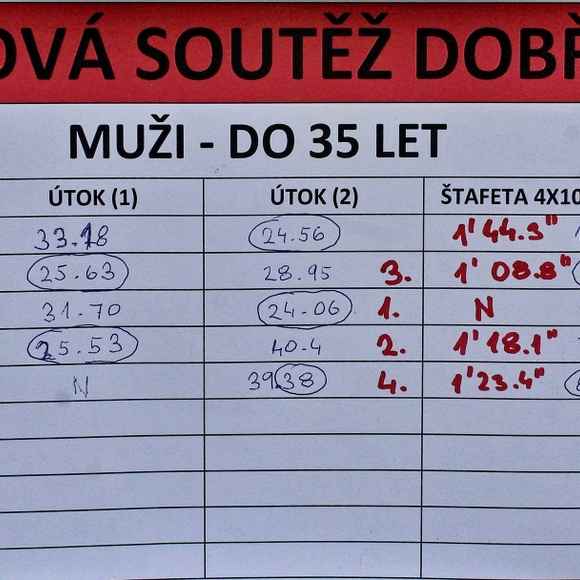 OVÁ SOUTĚŽ DOBŘ
MUŽI - DO 35 LET
ÚTOK (1) ÚTOK (2) ŠTAFETA 4X10
33.18 24.56 1'44.3"
25.63 28.95 3. 1'08.8"
31.70 24.06 1. N
25.53 40.4 2. 1'18.1"
N 39.38 4. 1'23.4"